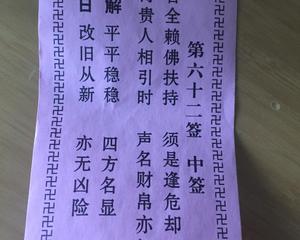 第六十二签 中签
全赖佛扶持 须是逢危却
贵人相引时 声名财帛亦
解 平平稳稳 四方名显
曰 改旧从新 亦无凶险